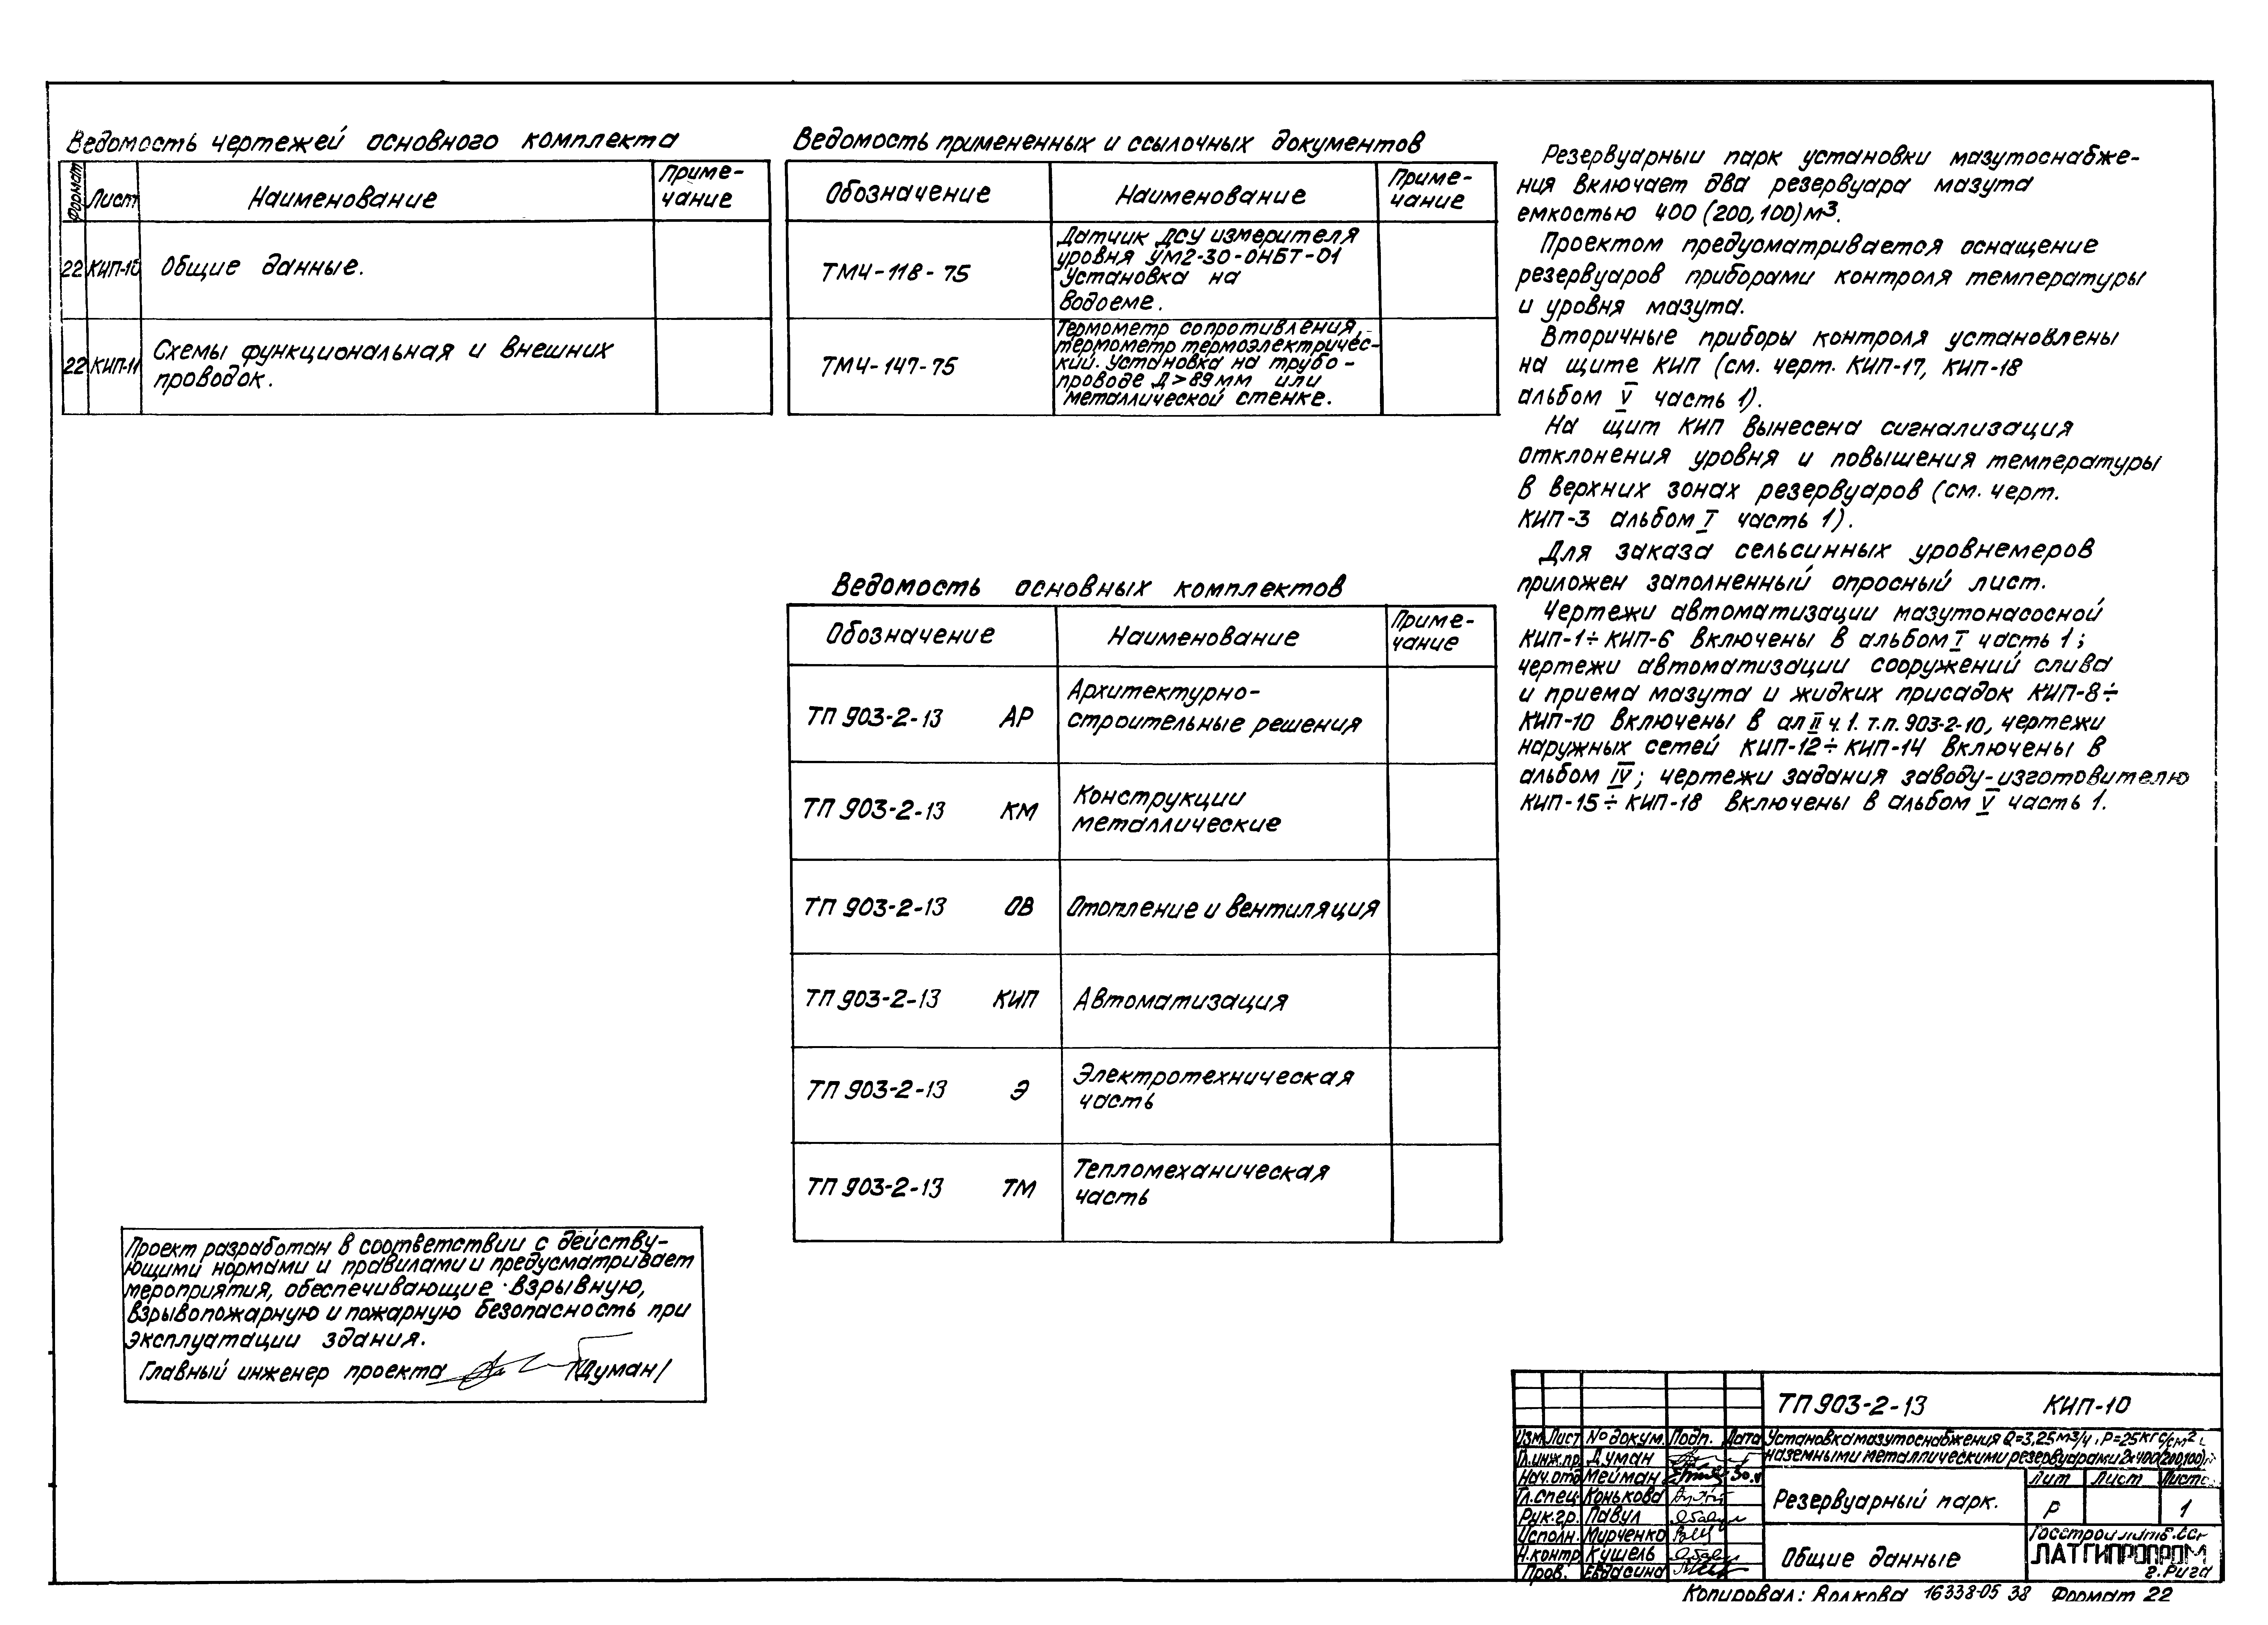 Ведомость чертежей основного комплекта
Формат Лист Наименование Приме-
чание
22 КИП-10 Общие данные.
22 КИП-11 Схемы функциональная и внешних
проводок.
Ведомость примененных и ссылочных документов
Обозначение Наименование Приме-
чание
ТМ4-118-75
Датчик ДСУ измерителя
уровня УМ2-30-ОНБТ-01
Установка на
водоеме.
ТМ4-147-75
Термометр сопротивления,
термометр термоэлектричес-
кий. Установка на трубо-
проводе Д>89мм или
металлической стенке.
Ведомость основных комплектов
Обозначение Наименование Приме-
чание
ТП 903-2-13 АР Архитектурно-
строительные решения
ТП 903-2-13 КМ Конструкции
металлические
ТП 903-2-13 ОВ Отопление и вентиляция
ТП 903-2-13 КИП Автоматизация
ТП 903-2-13 Э Электротехническая
часть
ТП 903-2-13 ТМ Тепломеханическая
часть
Резервуарный парк установки мазутоснабже-
ния включает два резервуара мазута
емкостью 400 (200,100)м3.
Проектом предусматривается оснащение
резервуаров приборами контроля температуры
и уровня мазута.
Вторичные приборы контроля установлены
на щите КИП (см. черт. КИП-17, КИП-18
альбом V часть 1).
На щит КИП вынесена сигнализация
отклонения уровня и повышения температуры
в верхних зонах резервуаров (см. черт.
КИП-3 альбом I часть 1).
Для заказа сельсинных уровнемеров
приложен заполненный опросный лист.
Чертежи автоматизации мазутонасосной
КИП-1÷КИП-6 включены в альбом I часть 1;
чертежи автоматизации сооружений слива
и приема мазута и жидких присадок КИП-8÷
КИП-10 включены в ал II ч.1. т.п. 903-2-10, чертежи
наружных сетей КИП-12÷КИП-14 включены в
альбом IV; чертежи задания заводу-изготовителю
КИП-15÷КИП-18 включены в альбом V часть 1.
Проект разработан в соответствии с действу-
ющими нормами и правилами и предусматривает
мероприятия, обеспечивающие взрывную,
взрывопожарную и пожарную безопасность при
эксплуатации здания.
Главный инженер проекта /Думан/
ТП 903-2-13 КИП-10
Изм. Лист № докум. Подп. Дата
Установка мазутоснабжения Q=3,25м3/ч, Р=25кгс/см2 с
наземными металлическими резервуарами 2×400(200,100)м3
Гл.инж.пр. Думан
Нач.отд. Мейман
Гл.спец. Конькова
Рук.гр. Павул
Исполн. Мирченко
Н.контр. Кушель
Пров. Евдасина
Резервуарный парк.
Лит Лист Листов
Р 1
Общие данные
ЛАТГИПРОПРОМ
г. Рига
Копировал: Волкова 16338-05 38 Формат 22